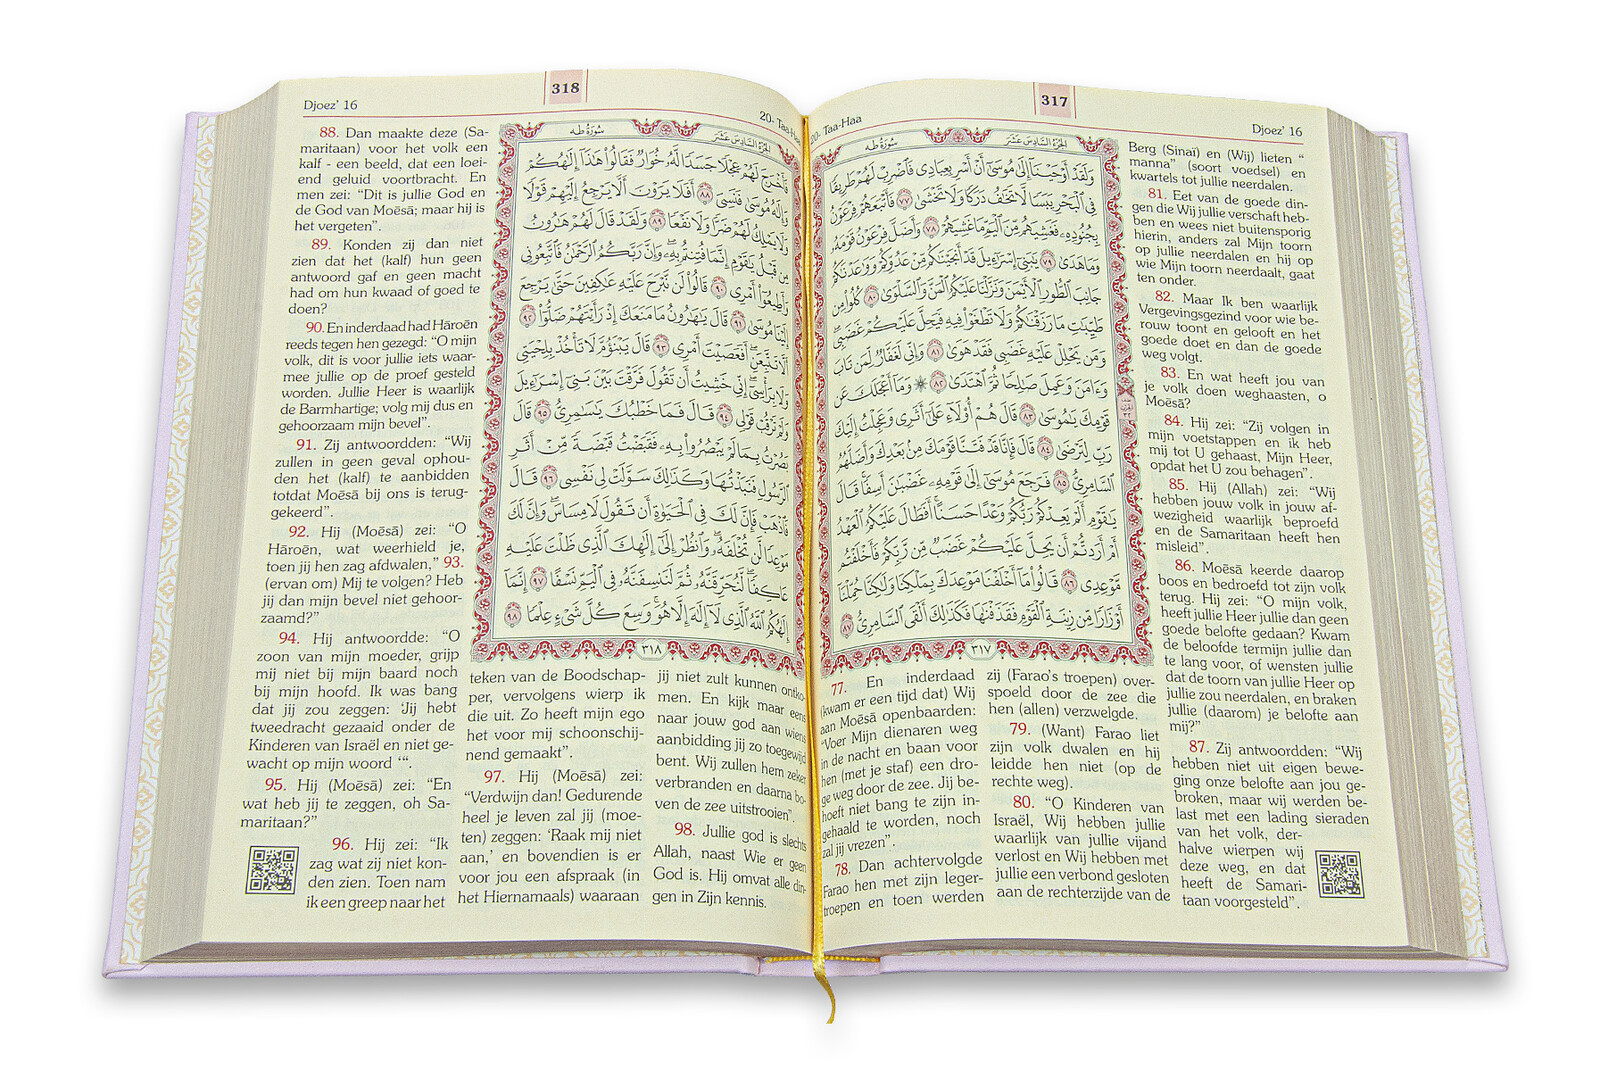 20- Taa-Haa
317
Djoez’ 16
الجزء السادس عشر
سورة طه
وَلَقَدْ أَوْحَيْنَآ إِلَىٰ مُوسَىٰٓ أَنْ أَسْرِ بِعِبَادِى فَٱضْرِبْ لَهُمْ طَرِيقًا
فِى ٱلْبَحْرِ يَبَسًا لَّا تَخَٰفُ دَرَكًا وَلَا تَخْشَىٰ ٧٧ فَأَتْبَعَهُمْ فِرْعَوْنُ
بِجُنُودِهِۦ فَغَشِيَهُم مِّنَ ٱلْيَمِّ مَا غَشِيَهُمْ ٧٨ وَأَضَلَّ فِرْعَوْنُ قَوْمَهُۥ
وَمَا هَدَىٰ ٧٩ يَٰبَنِىٓ إِسْرَٰٓءِيلَ قَدْ أَنجَيْنَٰكُم مِّنْ عَدُوِّكُمْ وَوَٰعَدْنَٰكُمْ
جَانِبَ ٱلطُّورِ ٱلْأَيْمَنَ وَنَزَّلْنَا عَلَيْكُمُ ٱلْمَنَّ وَٱلسَّلْوَىٰ ٨٠ كُلُوا۟ مِن
طَيِّبَٰتِ مَا رَزَقْنَٰكُمْ وَلَا تَطْغَوْا۟ فِيهِ فَيَحِلَّ عَلَيْكُمْ غَضَبِى
وَمَن يَحْلِلْ عَلَيْهِ غَضَبِى فَقَدْ هَوَىٰ ٨١ وَإِنِّى لَغَفَّارٌ لِّمَن تَابَ
وَءَامَنَ وَعَمِلَ صَٰلِحًا ثُمَّ ٱهْتَدَىٰ ٨٢ ۞ وَمَآ أَعْجَلَكَ عَن
قَوْمِكَ يَٰمُوسَىٰ ٨٣ قَالَ هُمْ أُو۟لَآءِ عَلَىٰٓ أَثَرِى وَعَجِلْتُ إِلَيْكَ
رَبِّ لِتَرْضَىٰ ٨٤ قَالَ فَإِنَّا قَدْ فَتَنَّا قَوْمَكَ مِنۢ بَعْدِكَ وَأَضَلَّهُمُ
ٱلسَّامِرِىُّ ٨٥ فَرَجَعَ مُوسَىٰٓ إِلَىٰ قَوْمِهِۦ غَضْبَٰنَ أَسِفًا قَالَ
يَٰقَوْمِ أَلَمْ يَعِدْكُمْ رَبُّكُمْ وَعْدًا حَسَنًا أَفَطَالَ عَلَيْكُمُ ٱلْعَهْدُ
أَمْ أَرَدتُّمْ أَن يَحِلَّ عَلَيْكُمْ غَضَبٌ مِّن رَّبِّكُمْ فَأَخْلَفْتُم
مَّوْعِدِى ٨٦ قَالُوا۟ مَآ أَخْلَفْنَا مَوْعِدَكَ بِمَلْكِنَا وَلَٰكِنَّا حُمِّلْنَآ
أَوْزَارًا مِّن زِينَةِ ٱلْقَوْمِ فَقَذَفْنَٰهَا فَكَذَٰلِكَ أَلْقَى ٱلسَّامِرِىُّ ٨٧
٣١٧
77. En inderdaad
(kwam er een tijd dat) Wij
aan Moēsā openbaarden:
“Voer Mijn dienaren weg
in de nacht en baan voor
hen (met je staf) een dro-
ge weg door de zee. Jij be-
hoeft niet bang te zijn in-
gehaald te worden, noch
zal jij vrezen”.
78. Dan achtervolgde
Farao hen met zijn leger-
troepen en toen werden
zij (Farao's troepen) over-
spoeld door de zee die
hen (allen) verzwelgde.
79. (Want) Farao liet
zijn volk dwalen en hij
leidde hen niet (op de
rechte weg).
80. “O Kinderen van
Israël, Wij hebben jullie
waarlijk van jullie vijand
verlost en Wij hebben met
jullie een verbond gesloten
aan de rechterzijde van de
Berg (Sinaï) en (Wij) lieten “
manna” (soort voedsel) en
kwartels tot jullie neerdalen.
81. Eet van de goede din-
gen die Wij jullie verschaft heb-
ben en wees niet buitensporig
hierin, anders zal Mijn toorn
op jullie neerdalen en hij op
wie Mijn toorn neerdaalt, gaat
ten onder.
82. Maar Ik ben waarlijk
Vergevingsgezind voor wie be-
rouw toont en gelooft en het
goede doet en dan de goede
weg volgt.
83. En wat heeft jou van
je volk doen weghaasten, o
Moēsā?
84. Hij zei: “Zij volgen in
mijn voetstappen en ik heb
mij tot U gehaast, Mijn Heer,
opdat het U zou behagen”.
85. Hij (Allah) zei: “Wij
hebben jouw volk in jouw af-
wezigheid waarlijk beproefd
en de Samaritaan heeft hen
misleid”.
86. Moēsā keerde daarop
boos en bedroefd tot zijn volk
terug. Hij zei: “O mijn volk,
heeft jullie Heer jullie dan geen
goede belofte gedaan? Kwam
de beloofde termijn jullie dan
te lang voor, of wensten jullie
dat de toorn van jullie Heer op
jullie zou neerdalen, en braken
jullie (daarom) je belofte aan
mij?”
87. Zij antwoordden: “Wij
hebben niet uit eigen bewe-
ging onze belofte aan jou ge-
broken, maar wij werden be-
last met een lading sieraden
van het volk, der-
halve wierpen wij
deze weg, en dat
heeft de Samari-
taan voorgesteld”.
Djoez’ 16
318
20- Taa-Ha
الجزء السادس عشر
سورة طه
فَأَخْرَجَ لَهُمْ عِجْلًا جَسَدًا لَّهُۥ خُوَارٌ فَقَالُوا۟ هَٰذَآ إِلَٰهُكُمْ
وَإِلَٰهُ مُوسَىٰ فَنَسِىَ ٨٨ أَفَلَا يَرَوْنَ أَلَّا يَرْجِعُ إِلَيْهِمْ قَوْلًا
وَلَا يَمْلِكُ لَهُمْ ضَرًّا وَلَا نَفْعًا ٨٩ وَلَقَدْ قَالَ لَهُمْ هَٰرُونُ
مِن قَبْلُ يَٰقَوْمِ إِنَّمَا فُتِنتُم بِهِۦ وَإِنَّ رَبَّكُمُ ٱلرَّحْمَٰنُ فَٱتَّبِعُونِى
وَأَطِيعُوٓا۟ أَمْرِى ٩٠ قَالُوا۟ لَن نَّبْرَحَ عَلَيْهِ عَٰكِفِينَ حَتَّىٰ يَرْجِعَ
إِلَيْنَا مُوسَىٰ ٩١ قَالَ يَٰهَٰرُونُ مَا مَنَعَكَ إِذْ رَأَيْتَهُمْ ضَلُّوٓا۟ ٩٢
أَلَّا تَتَّبِعَنِ أَفَعَصَيْتَ أَمْرِى ٩٣ قَالَ يَبْنَؤُمَّ لَا تَأْخُذْ بِلِحْيَتِى
وَلَا بِرَأْسِىٓ إِنِّى خَشِيتُ أَن تَقُولَ فَرَّقْتَ بَيْنَ بَنِىٓ إِسْرَٰٓءِيلَ
وَلَمْ تَرْقُبْ قَوْلِى ٩٤ قَالَ فَمَا خَطْبُكَ يَٰسَٰمِرِىُّ ٩٥ قَالَ
بَصُرْتُ بِمَا لَمْ يَبْصُرُوا۟ بِهِۦ فَقَبَضْتُ قَبْضَةً مِّنْ أَثَرِ
ٱلرَّسُولِ فَنَبَذْتُهَا وَكَذَٰلِكَ سَوَّلَتْ لِى نَفْسِى ٩٦ قَالَ
فَٱذْهَبْ فَإِنَّ لَكَ فِى ٱلْحَيَوٰةِ أَن تَقُولَ لَا مِسَاسَ وَإِنَّ لَكَ
مَوْعِدًا لَّن تُخْلَفَهُۥ وَٱنظُرْ إِلَىٰٓ إِلَٰهِكَ ٱلَّذِى ظَلْتَ عَلَيْهِ
عَاكِفًا لَّنُحَرِّقَنَّهُۥ ثُمَّ لَنَنسِفَنَّهُۥ فِى ٱلْيَمِّ نَسْفًا ٩٧ إِنَّمَآ
إِلَٰهُكُمُ ٱللَّهُ ٱلَّذِى لَآ إِلَٰهَ إِلَّا هُوَ وَسِعَ كُلَّ شَىْءٍ عِلْمًا ٩٨
٣١٨
88. Dan maakte deze (Sa-
maritaan) voor het volk een
kalf - een beeld, dat een loei-
end geluid voortbracht. En
men zei: “Dit is jullie God en
de God van Moēsā; maar hij is
het vergeten”.
89. Konden zij dan niet
zien dat het (kalf) hun geen
antwoord gaf en geen macht
had om hun kwaad of goed te
doen?
90. En inderdaad had Hāroēn
reeds tegen hen gezegd: “O mijn
volk, dit is voor jullie iets waar-
mee jullie op de proef gesteld
worden. Jullie Heer is waarlijk
de Barmhartige; volg mij dus en
gehoorzaam mijn bevel”.
91. Zij antwoordden: “Wij
zullen in geen geval ophou-
den het (kalf) te aanbidden
totdat Moēsā bij ons is terug-
gekeerd”.
92. Hij (Moēsā) zei: “O
Hāroēn, wat weerhield je,
toen jij hen zag afdwalen,” 93.
(ervan om) Mij te volgen? Heb
jij dan mijn bevel niet gehoor-
zaamd?”
94. Hij antwoordde: “O
zoon van mijn moeder, grijp
mij niet bij mijn baard noch
bij mijn hoofd. Ik was bang
dat jij zou zeggen: ‘Jij hebt
tweedracht gezaaid onder de
Kinderen van Israël en niet ge-
wacht op mijn woord ‘“.
95. Hij (Moēsā) zei: “En
wat heb jij te zeggen, oh Sa-
maritaan?”
96. Hij zei: “Ik
zag wat zij niet kon-
den zien. Toen nam
ik een greep naar het
teken van de Boodschap-
per, vervolgens wierp ik
die uit. Zo heeft mijn ego
het voor mij schoonschij-
nend gemaakt”.
97. Hij (Moēsā) zei:
“Verdwijn dan! Gedurende
heel je leven zal jij (moe-
ten) zeggen: ‘Raak mij niet
aan,’ en bovendien is er
voor jou een afspraak (in
het Hiernamaals) waaraan
jij niet zult kunnen ontko-
men. En kijk maar eens
naar jouw god aan wiens
aanbidding jij zo toegewijd
bent. Wij zullen hem zeker
verbranden en daarna bo-
ven de zee uitstrooien”.
98. Jullie god is slechts
Allah, naast Wie er geen
God is. Hij omvat alle din-
gen in Zijn kennis.